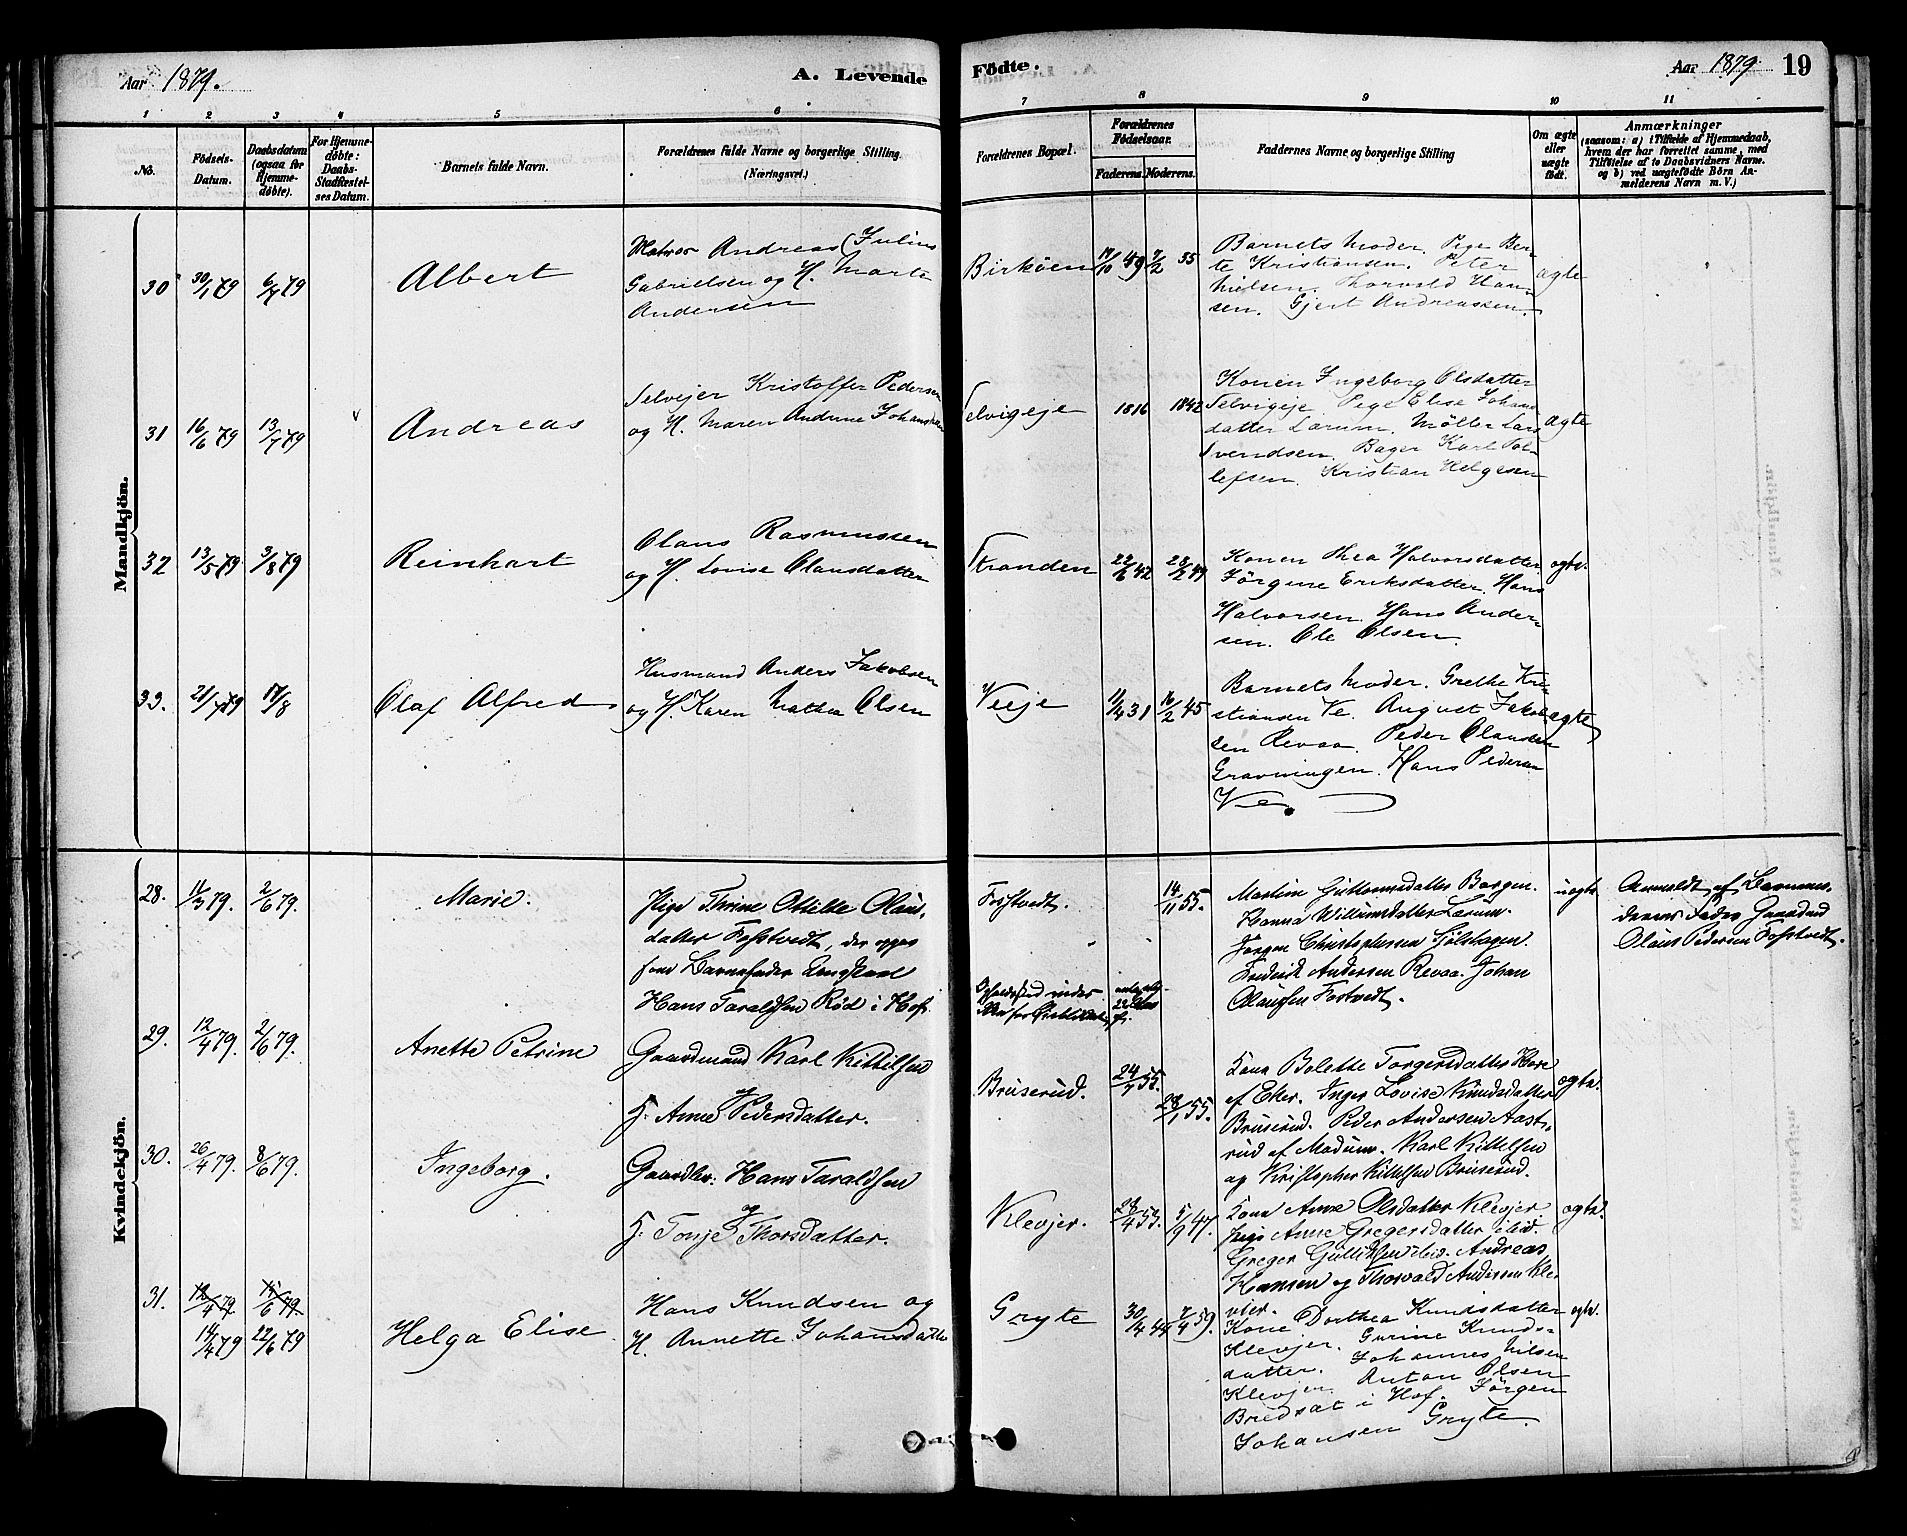 Aar 1879.
A. Levende
Fødte.
Aar 1879
19
1 2 3 4 5 6 7 8 9 10 11
No.
Fødsels-
Datum.
Daabsdatum
(ogsaa for
Hjemme-
døbte).
For Hjemme-
døbte:
Daabs-
Stadfæstel-
ses Datum.
Barnets fulde Navn.
Forældrenes fulde Navne og borgerlige Stilling.
(Næringsvei.)
Forældrenes Bopæl.
Forældrenes
Fødselsaar.
Faderens. Moderens.
Faddernes Navne og borgerlige Stilling
Om ægte
eller
uægte
født.
Anmærkninger
(saasom: a) i Tilfælde af Hjemmedaab,
hvem der har forrettet samme, med
Tilføielse af to Daabsvidners Navne.
og b) ved uægtefødte Børn An-
melderens Navn m. V.)
Mandkjøn.
30 30/1 79 6/7 79
Albert
Matros Andreas (Julius
Gabrielsen og H. Marte
Andersen
Birkøen 17/10 49 7/2 55
Barnets Moder. Pige Ber-
te Kristiansen. Peter
Nielsen. Thorvald Han-
sen. Gjert Andreassen.
ægte
31 16/6 79 13/7 79
Andreas
Selvejer Kristoffer Pedersen
og H. Maren Andrine Johansdatter
Selvigeje 1816 1842
Konen Ingeborg Olsdatter
Selvigeje. Pige Elise Johans
datter Lærum. Møller Lars
Svendsen. Bager Karl Tol-
lefsen. Kristian Helgesen
ægte
32 13/5 79 3/8 79
Reinhart
Olaus Rasmussen
og H. Lovise Olausdatter
Stranden 22/6 42 28/2 49
Konen Thea Halvorsdatter
Jørgine Eriksdatter. Hans
Halvorsen. Hans Ander-
sen. Ole Olsen.
ægte.
33. 21/7 79 17/8
Olaf Alfred
Husmand Anders Jakobsen
og H. Karen Mathea Olsen
Veeje 11/4 31 16/2 45
Barnets Moder. Grethe Kri-
stiansen Ve. August Jakob
sen Revaa. Peder Olausen
Gravningen. Hans Pedersen
Ve.
ægte
Kvindekjøn.
28. 11/3 79. 2/6 79.
Marie.
Pige Thrine Otilie Olaus-
datter Fosstvedt, der opgav
som Barnefader Ungkarl
Hans Taraldsen Rød i Hof.
Fosstvedt. 14/11 55.
Martine Guttormsdatter Borgen.
Hanna Willumsdatter Lærum.
Jørgen Christophersen Sjølshagen.
Fredrik Andersen Revaa. Johan
Olausen Fostvedt.
uægte.
Anmeldt af Barnemo-
derens Fader Gaardmd
Olaus Pedersen Fosstvedt.
29. 12/4 79. 2/6 79.
Anette Petrine
Gaardmand Karl Kittilsen
og
H. Anne Pedersdatter.
Bruserud. 24/7 55. 28/1 55.
Kona Bolette Torgersdatter Hore
af Eker. Inger Lovise Knudsdatter
Bruserud. Peder Andersen Aast-
rud af Modum. Karl Kittilsen
og Kristopher Kittelsen Bruserud.
ægte.
30. 26/4 79. 8/6 79.
Ingeborg.
Gaardbr. Hans Taraldsen
og
H. Tonje Thorsdatter.
Klevjer. 28/4 53. 5/9 47.
Kona Anne Olsdatter Klevjer.
Pige Anne Gregersdatter ibid.
Greger Gulliksen ibid. Andreas
Hansen og Thorvald Andersen Kle
vjer.
ægte.
31. 12/4 79 15/6 79
14/4 79 22/6 79
Helga Elise
Hans Knudsen og
H. Annette Johansdatter
Gryte 30/4 44 7/4 59.
Kone Dorthea Knudsdatter
Klevjer. Gurine Knuds-
datter. Johannes Nilsen
Klevjer. Anton Olsen
Bredsat i Hof. Jørgen
Johansen Gryte.
ægte.